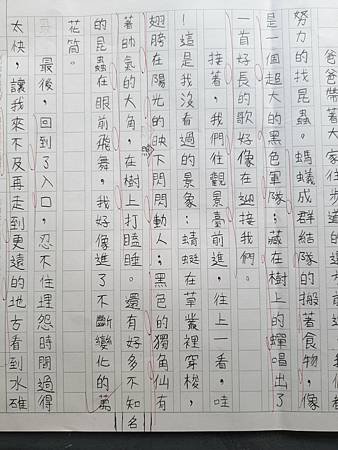 爸爸帶著大家往步道的遠方前進
努力的找昆蟲。螞蟻成群結隊的搬著食物,像
是一個超大的黑色軍隊;藏在樹上的蟬唱出了
一首好長的歌好像在迎接我們。
接著,我們往觀景臺前進,往上一看,哇
!這是我沒看過的景象:蜻蜓在草叢裡穿梭,
翅膀在陽光的映照下閃閃動人;黑色的獨角仙有
著帥氣的大角,在樹上打瞌睡。還有好多不知名
的昆蟲在眼前飛舞,我好像進了不斷變化的萬
花筒。
最後,回到了入口,忍不住埋怨時間過得
太快,讓我來不及再走到更遠的地方看到水碓